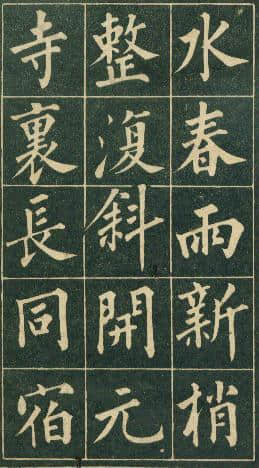 水春雨新梢
整復斜開元
寺裏長同宿